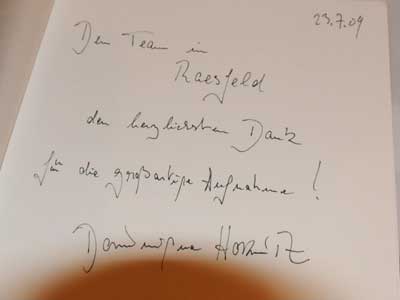 23.7.09
Dem Team in
Raesfeld
den herzlichsten Dank
für die großartige Aufnahme!
Dominique Horwitz